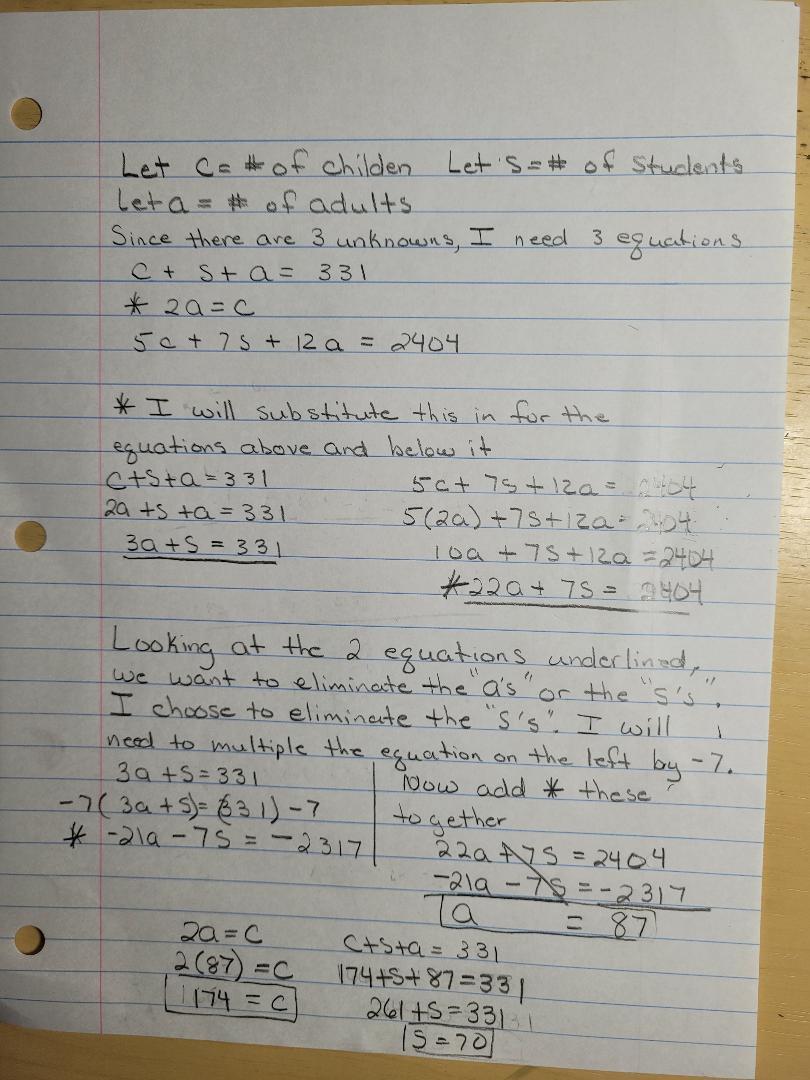 Let C = # of childen Let S = # of Students
Let a = # of adults
Since there are 3 unknowns, I need 3 equations
C + S + a = 331
* 2a = C
5c + 7s + 12a = 2404
* I will substitute this in for the
equations above and below it
C+S+a = 331
2a +S +a = 331
3a + S = 331
5c + 7s + 12a = 2404
5(2a) + 7s + 12a = 2404
10a + 7S + 12a = 2404
* 22a + 7S = 2404
Looking at the 2 equations underlined,
we want to eliminate the "a's" or the "S's".
I choose to eliminate the "S's". I will
need to multiple the equation on the left by -7.
3a + S = 331
-7( 3a + S) = (331) -7
* -21a - 7S = -2317
Now add * these
together
22a + 7S = 2404
-21a - 7S = -2317
a = 87
2a = C
2(87) = C
174 = C
C+S+a = 331
174+S+87=331
261+S=331
S = 70